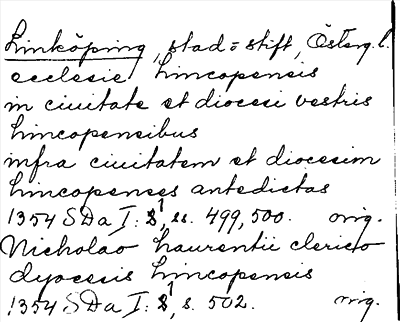 Linköping, stad o stift, Österg. l.
ecclesie lincopensis
in ciuitate et diocesi vestris
lincopensibus
infra ciuitatem et diocesim
lincopenses antedictas
1354 SDa I: 1, ss. 499, 500. orig.
Nicholao laurentii clerico
dyocesis lincopensis
1354 SDa I: 1, s. 502. orig.